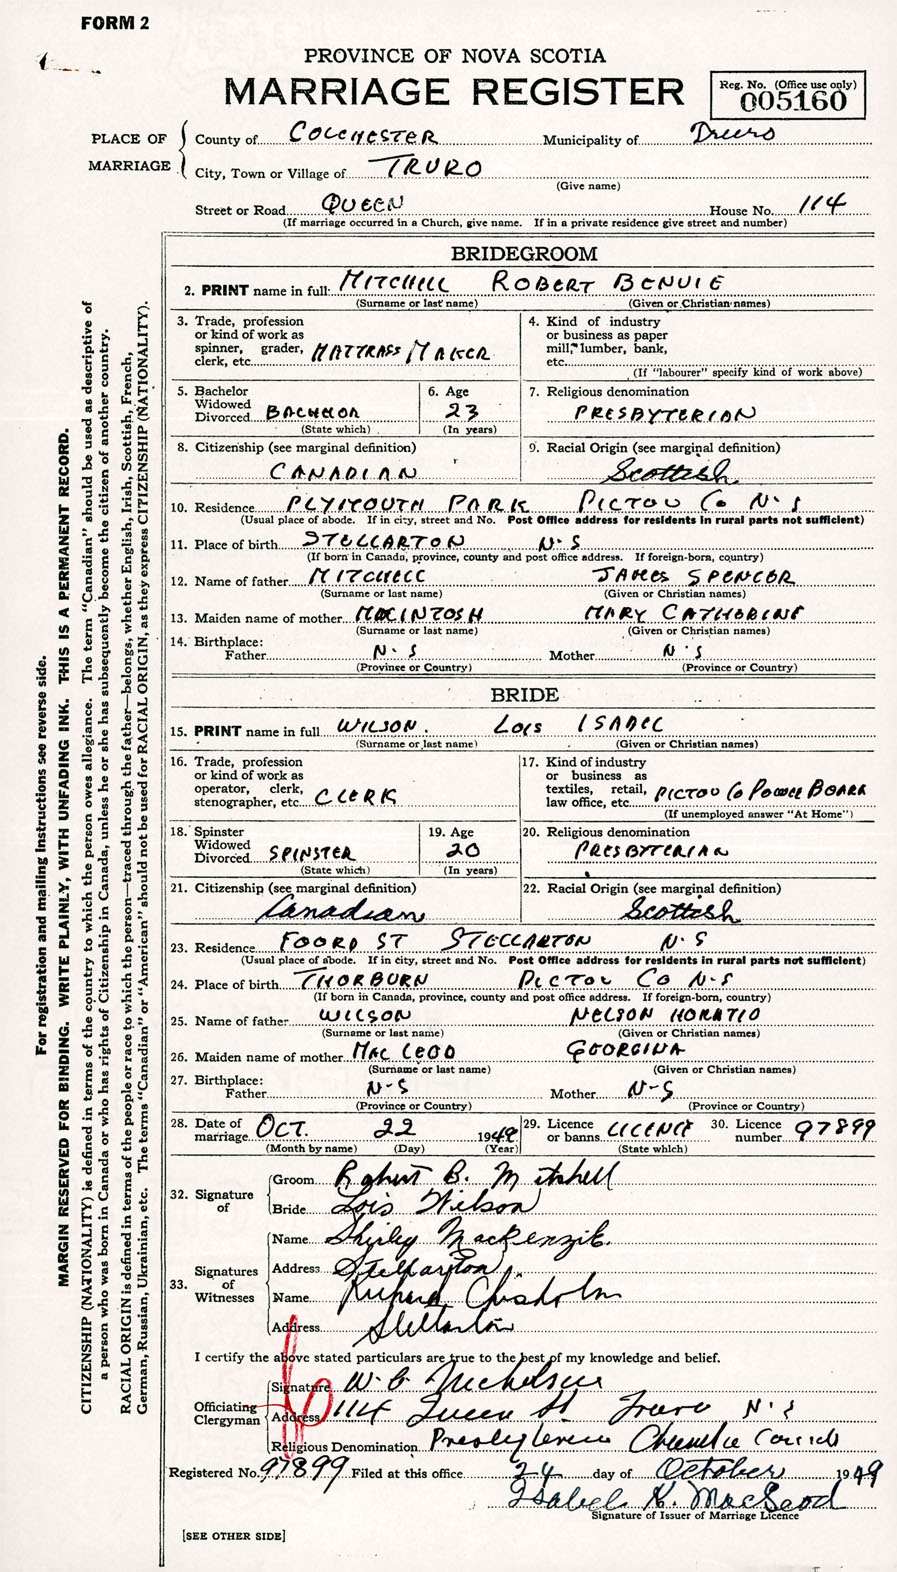 FORM 2
PROVINCE OF NOVA SCOTIA
MARRIAGE REGISTER
Reg. No. (Office use only)
005160
PLACE OF MARRIAGE
County of COLCHESTER Municipality of Truro
City, Town or Village of TRURO
(Give name)
Street or Road QUEEN House No. 114
(If marriage occurred in a Church, give name. If in a private residence give street and number)
BRIDEGROOM
2. PRINT name in full: MITCHELL ROBERT BENVIE
(Surname or last name) (Given or Christian names)
3. Trade, profession or kind of work as spinner, grader, clerk, etc. MATTRASS MAKER
4. Kind of industry or business as paper mill, lumber, bank, etc.
(If "labourer" specify kind of work above)
5. Bachelor Widowed Divorced BACHELOR
(State which)
6. Age 23
(In years)
7. Religious denomination
PRESBYTERIAN
8. Citizenship (see marginal definition)
CANADIAN
9. Racial Origin (see marginal definition)
Scottish
10. Residence PLYMOUTH PARK PICTOU Co N.S
(Usual place of abode. If in city, street and No. Post Office address for residents in rural parts not sufficient)
11. Place of birth STELLARTON N.S
(If born in Canada, province, county and post office address. If foreign-born, country)
12. Name of father MITCHELL JAMES SPENCER
(Surname or last name) (Given or Christian names)
13. Maiden name of mother MACINTOSH MARY CATHERINE
(Surname or last name) (Given or Christian names)
14. Birthplace:
Father N.S Mother N.S
(Province or Country) (Province or Country)
BRIDE
15. PRINT name in full WILSON. LOIS ISABEL
(Surname or last name) (Given or Christian names)
16. Trade, profession or kind of work as operator, clerk, stenographer, etc. CLERK
17. Kind of industry or business as textiles, retail, law office, etc. PICTOU Co POWER BOARD
(If unemployed answer "At Home")
18. Spinster Widowed Divorced SPINSTER
(State which)
19. Age 20
(In years)
20. Religious denomination
PRESBYTERIAN
21. Citizenship (see marginal definition)
Canadian
22. Racial Origin (see marginal definition)
Scottish
23. Residence FOORD ST STELLARTON N.S
(Usual place of abode. If in city, street and No. Post Office address for residents in rural parts not sufficient)
24. Place of birth THORBURN PICTOU Co N-S
(If born in Canada, province, county and post office address. If foreign-born, country)
25. Name of father WILSON NELSON HORATIO
(Surname or last name) (Given or Christian names)
26. Maiden name of mother MAC LEOD GEORGINA
(Surname or last name) (Given or Christian names)
27. Birthplace:
Father N-S Mother N-S
(Province or Country) (Province or Country)
28. Date of marriage OCT. 22 1949
(Month by name) (Day) (Year)
29. Licence or banns LICENCE
(State which)
30. Licence number 97899
32. Signature of
Groom Robert B. Mitchell
Bride Lois Wilson
33. Signatures of Witnesses
Name Shirley MacKenzie
Address Stellarton
Name Richard Chisholm
Address Stellarton
I certify the above stated particulars are true to the best of my knowledge and belief.
Officiating Clergyman
Signature W. C. Nicholson
Address 114 Queen St Truro N.S
Religious Denomination Presbyterian Church in
Registered No. 97899 Filed at this office 24 day of October 1949
Isabel K. MacLeod
Signature of Issuer of Marriage Licence
[SEE OTHER SIDE]
For registration and mailing instructions see reverse side.
MARGIN RESERVED FOR BINDING. WRITE PLAINLY, WITH UNFADING INK. THIS IS A PERMANENT RECORD.
CITIZENSHIP (NATIONALITY) is defined in terms of the country to which the person owes allegiance. The term "Canadian" should be used as descriptive of
a person who was born in Canada or who has rights of Citizenship in Canada, unless he or she has subsequently become the citizen of another country.
RACIAL ORIGIN is defined in terms of the people or race to which the person—traced through the father—belongs, whether English, Irish, Scottish, French,
German, Russian, Ukrainian, etc. The terms "Canadian" or "American" should not be used for RACIAL ORIGIN, as they express CITIZENSHIP (NATIONALITY).